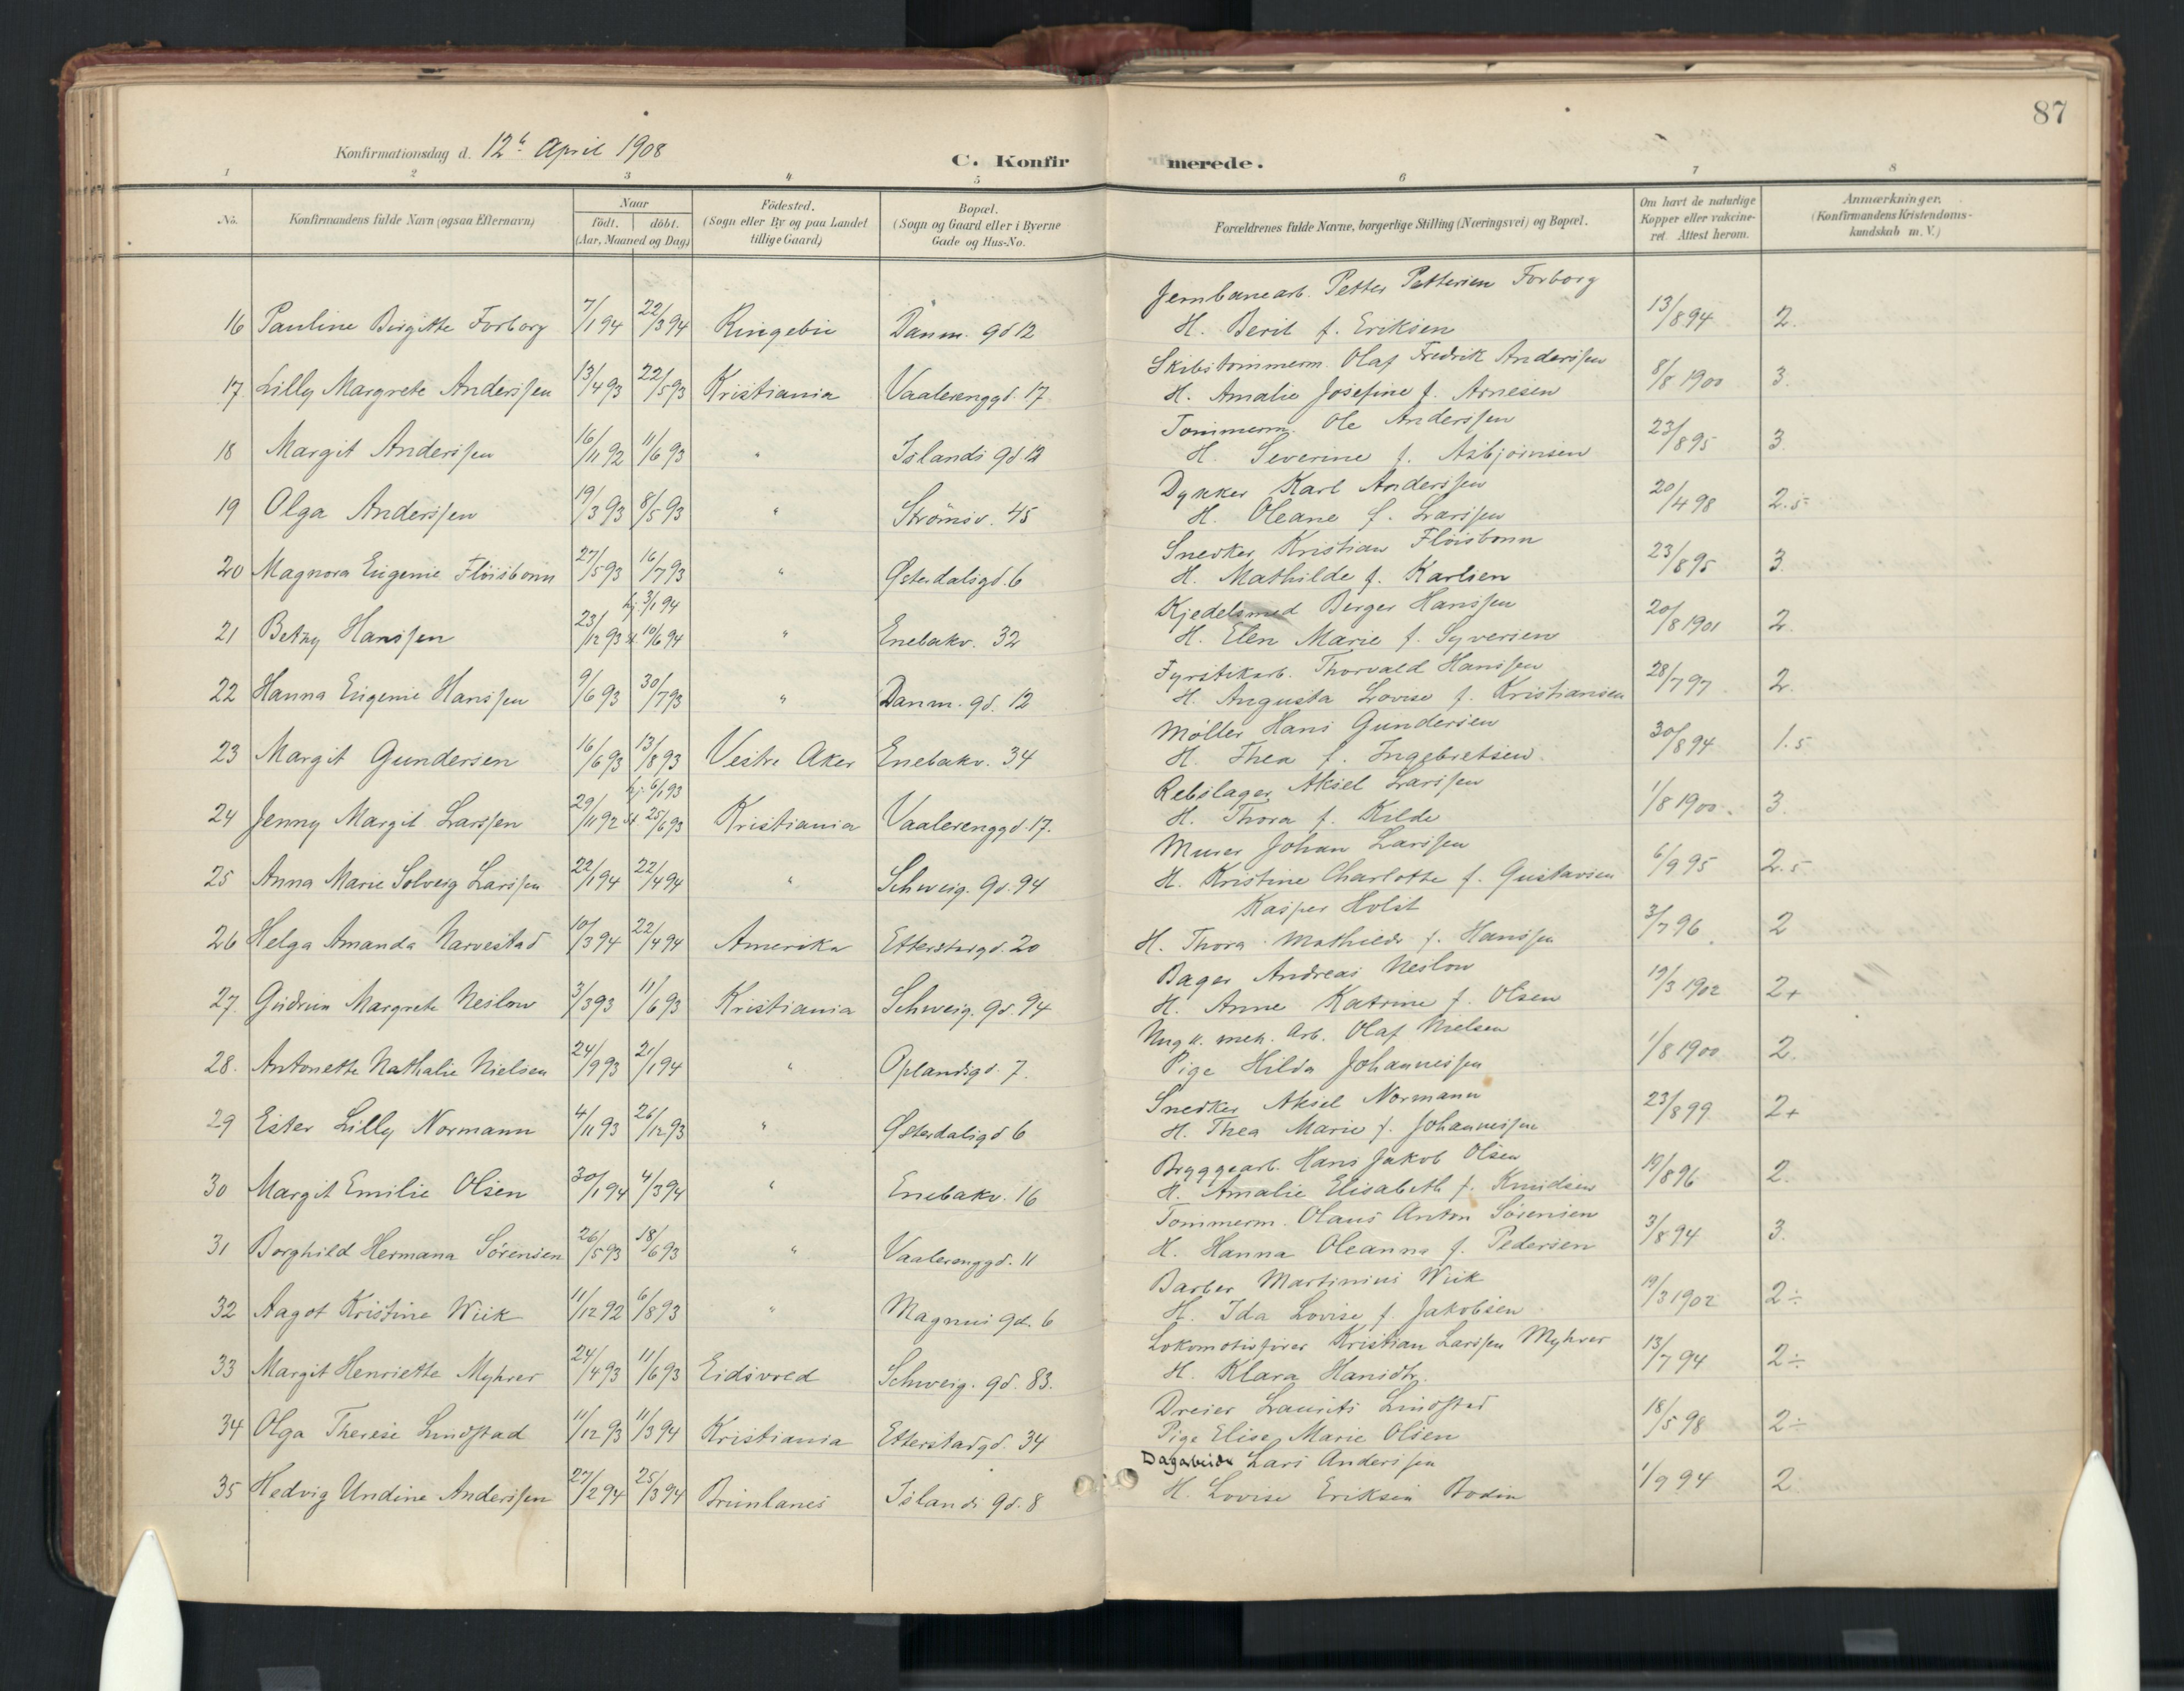 87
Konfirmationsdag d. 12te April 1908
C. Konfirmerede.
1 2 3 4 5 6 7 8
No. Konfirmandens fulde Navn (ogsaa Efternavn) Naar født. døbt. (Aar, Maaned og Dag) Födested. (Sogn eller By og paa Landet tillige Gaard) Bopæl. (Sogn og Gaard eller i Byerne Gade og Hus-No. Forældrenes fulde Navne, borgerlige Stilling (Næringsvei) og Bopæl. Om havt de naturlige Kopper eller vakcineret. Attest herom. Anmærkninger. (Konfirmandens Kristendomskundskab m. V.)
Jernbanearb. Petter Pettersen Forborg
16 Pauline Birgitte Forborg 7/1 94 22/3 94 Ringebu Danm. gd 12 H. Berit f. Eriksen 13/8 94 2.
Skibstømmerm. Olaf Fredrik Anderssen
17 Lilly Margrete Anderssen 13/4 93 22/5 93 Kristiania Vaalerenggd. 17 H. Amalie Josefine f. Arnesen 8/8 1900 3.
Tømmerm. Ole Anderssen
18 Margit Anderssen 16/11 92 11/6 93 " Islands gd 12 H. Severine f. Asbjørnsen 23/8 95 3.
Dykker Karl Anderssen
19 Olga Anderssen 19/3 93 8/5 93 " Strömsv. 45 H. Oleane f. Larssen 20/4 98 2.5
Snedker Kristian Fløisbonn
20 Magnora Eugenie Fløisbonn 27/5 93 16/7 93 " Østerdalsgd. 6 H. Mathilde f. Karlsen 23/8 95 3.
Kjedelsmed Birger Hanssen
21 Betzy Hanssen 23/12 93 hj. 3/1 94 st. 10/6 94 " Enebakv. 32 H. Elen Marie f. Syversen 20/8 1901 2.
Fyrstikarb. Thorvald Hanssen
22 Hanna Eugenie Hanssen 9/6 93 30/7 93 " Danm. gd. 12 H. Augusta Lovise f. Kristiansen 28/7 97 2.
Møller Hans Gundersen
23 Margit Gundersen 16/6 93 13/8 93 Vestre Aker Enebakv. 34 H. Thea f. Ingebretsen 30/8 94 1.5
Rebslager Aksel Larssen
24 Jenny Margit Larssen 29/11 92 hj. 6/1 93 st 25/6 93 Kristiania Vaalerenggd. 17. H. Thora f. Kilde 1/8 1900. 3.
Murer Johan Larssen
25 Anna Marie Solveig Larssen 22/1 94 22/4 94 " Schweig. gd. 94 H. Kristine Charlotte f. Gustavsen 6/9 95 2.5
Kasper Holst
26 Helga Amanda Narvestad 10/3 94 22/4 94 Amerika Etterstadgd. 20 H. Thora Mathilde f. Hanssen 3/7 96 2
Bager Andreas Neslow
27. Gudrun Margrete Neslow 3/3 93 11/6 93 Kristiania Schweig. gd. 94 H. Anne Katrine f. Olsen 19/3 1902 2+
Ungk. mek. Arb. Olaf Nielsen
28. Antonette Nathalie Nielsen 24/9 93 21/1 94 " Oplandsgd. 7. Pige Hilda Johannessen 1/8 1900 2.
Snedker Aksel Normann
29 Ester Lilly Normann 4/11 93 26/12 93 " Østerdalsgd 6 H. Thea Marie f. Johannessen 23/8 99 2+
Bryggearb. Hans Jakob Olsen
30 Margit Emilie Olsen 30/1 94 4/3 94 " Enebakv. 16 H. Amalie Elisabeth f. Knudsen 19/8 96 2.
Tømmerm. Olaus Anton Sörensen
31 Borghild Hermana Sörensen 26/5 93 18/6 93 " Vaalerenggd. 11 H. Hanna Oleanna f. Pedersen 3/8 94 3.
Barber Martinius Wiik
32 Aagot Kristine Wiik 11/12 92 6/8 93 " Magnus gd. 6 H. Ida Lovise f. Jakobsen 19/3 1902 2÷
Lokomotivfører Kristian Larssen Myhrer
33 Margit Henriette Myhrer 24/4 93 11/6 93 Eidsvold Schweig. gd. 83. H. Klara Hansdtr. 13/7 94 2÷
Dreier Laurits Lindstad
34 Olga Therese Lindstad 11/12 93 11/3 94 Kristiania Etterstadgd. 34 Pige Elise Marie Olsen 18/5 98 2÷
Dagarbeider Lars Anderssen
35 Hedvig Undine Anderssen 27/2 94 25/3 94 Brunlanes Islands gd. 8 H. Lovise Eriksen Bodin 1/9 94 2